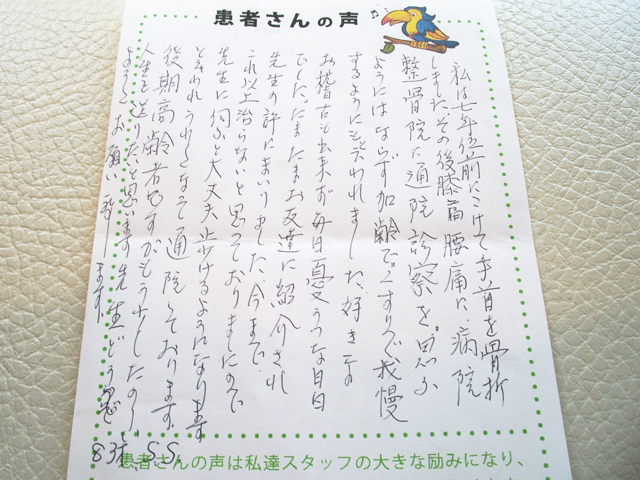 患者さんの声
私は七年位前にこけて手首を骨折
しました。その後膝痛腰痛に、病院
整骨院に通院診察を。思ふ
ようにはならず加齢で。くすりで我慢
するようにも云われました。好きな
お稽古も出来ず毎日憂うつな日日
でした。たまたまお友達に紹介され
先生の許にまいりました、今まで
これ以上治らないと思っておりましたので
先生に伺ふと大丈夫 歩けるようになります
と云われ うれしくなって通院しております。
後期高齢者ですがもう少したのしい
人生を送りたいと思います 先生どうぞ
よろしくお願い致します。
83才 S.S.
患者さんの声は私達スタッフの大きな励みになり、